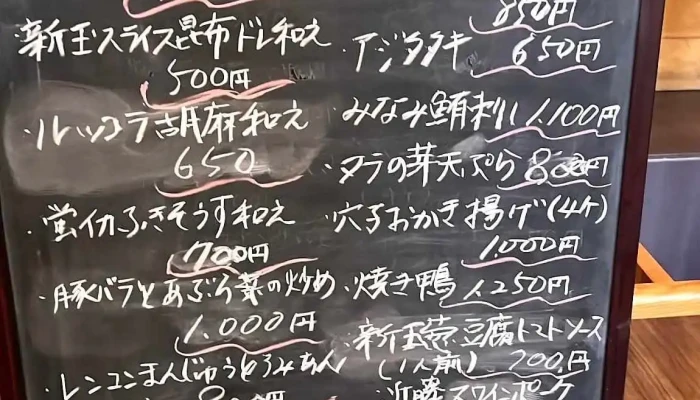 ・新玉スライス昆布ドレ和え
500円
・ルッコラ胡麻和え
650
・蛍イカふきそうす和え
700円
・豚バラとあぶら菜の炒め
1.000円
・レンコンまんじゅうとろみあん
850円
・アジタタキ 650円
・みなみ鮪刺し 1.100円
・タラの芽天ぷら 800円
・穴子おかき揚げ(4ケ)
1.000円
・焼き鴨 1.250円
・新玉葱豆腐トマトソース
(1人前) 700円